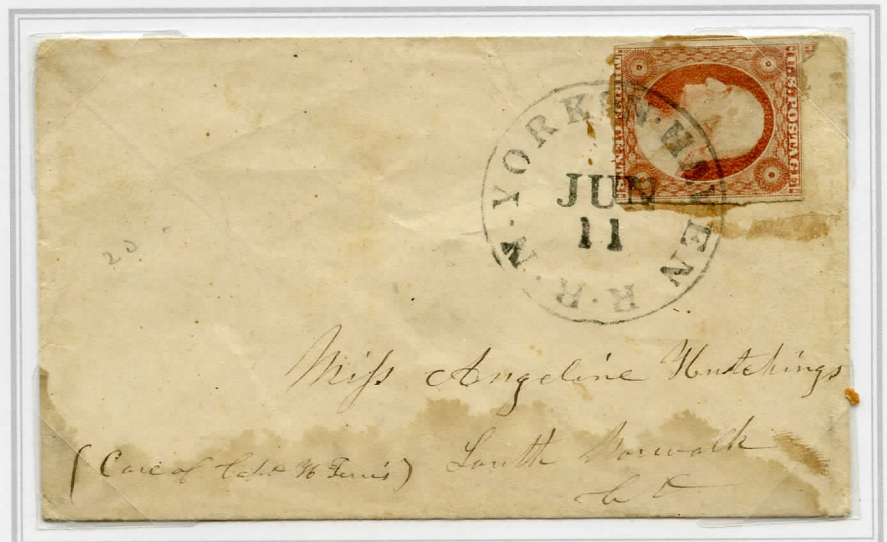 U.S. POSTAGE
THREE CENTS
N. YORK & N. HAVEN R.R.
JUN
11
20
Miss Angeline Hutchings
(Care of Capt H Ferris) South Norwalk
Ct